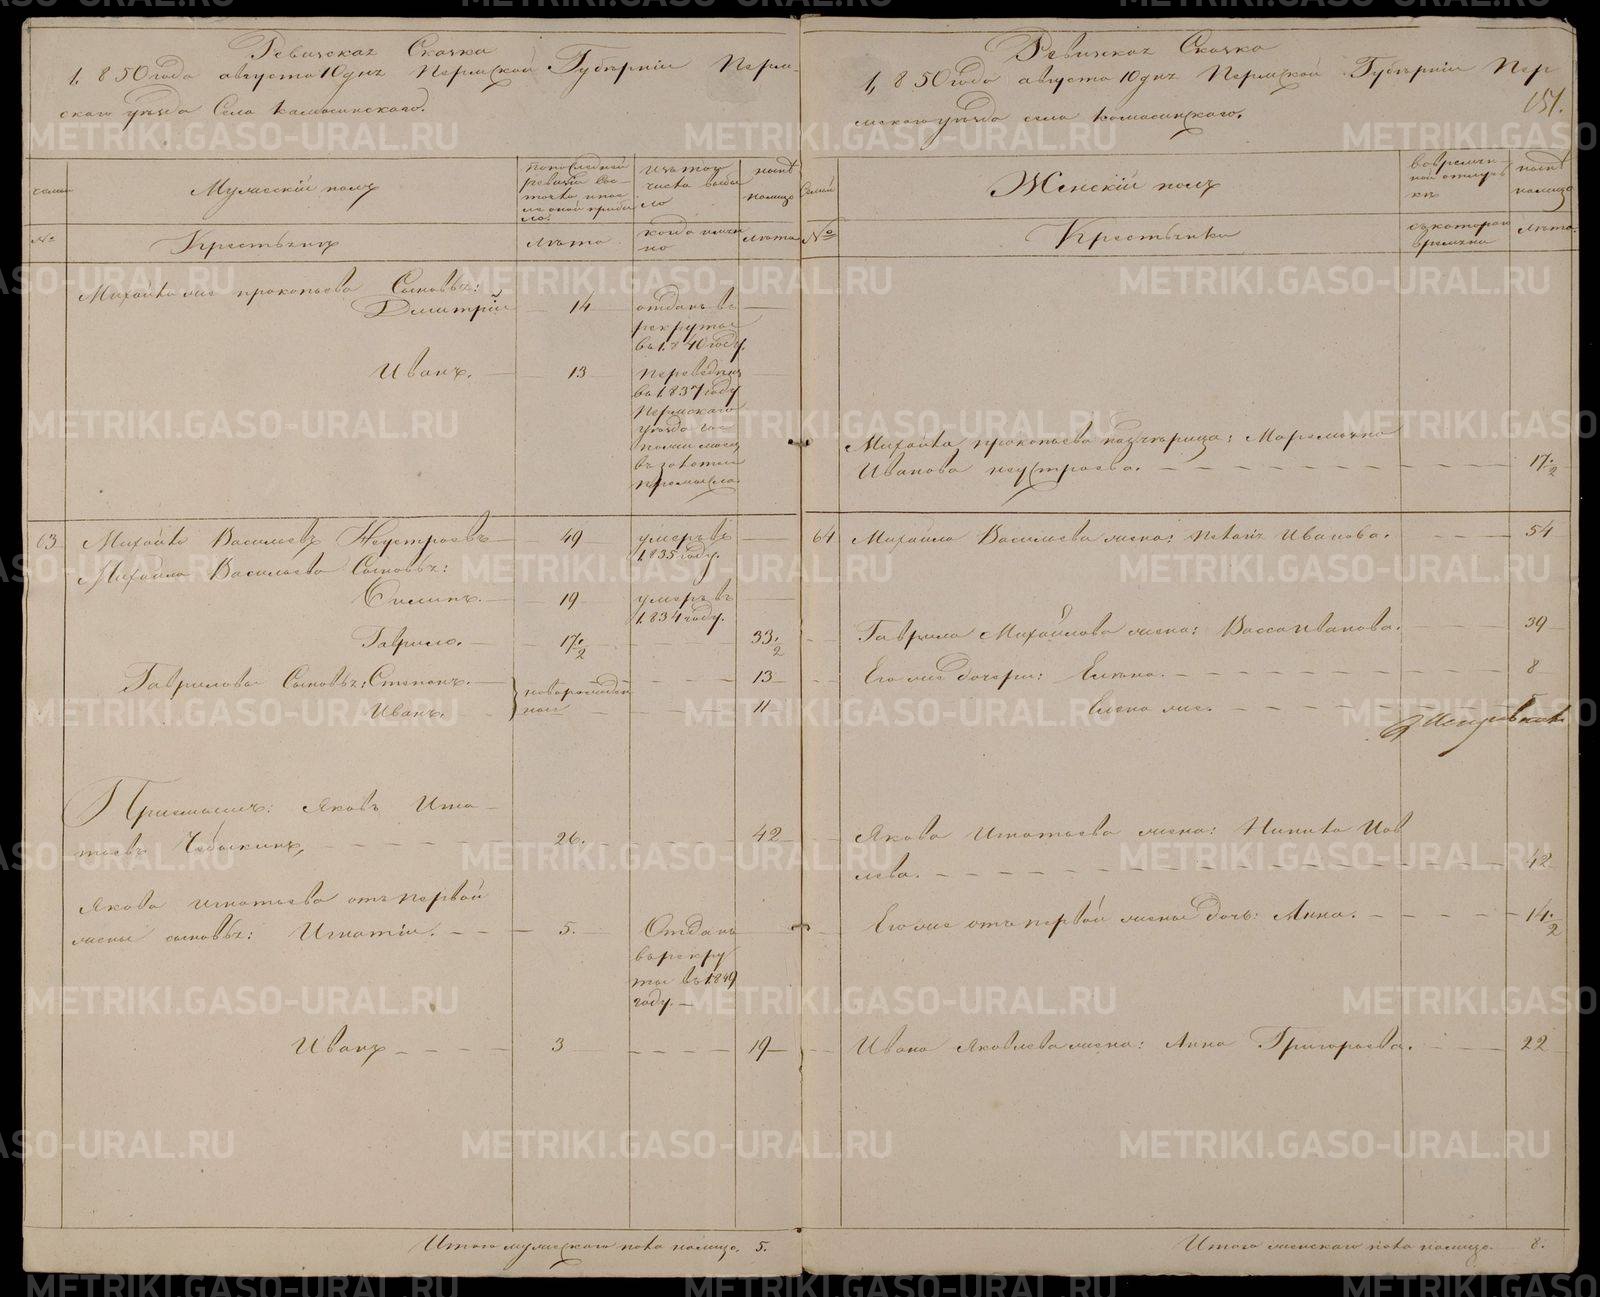 Ревизская Сказка
1,850 года августа 10 дня Пермской Губернiи Перм-
скаго уезда Села Камасинскаго.
семьи
Мужескiй полъ
по последней
ревизiи сос-
тояло и пос-
ле оной прибы
ло.
изъ того
числа выбы
ло
ныне
налицо
№
Крестьянъ
лета
когда имян
но
лета
Михайла же прокопьева Сыновья:
Дмитрiй 14 отданъ въ
рекруты
въ 1,840 году.
Иванъ. 13 переведенъ
въ 1,837 году
Пермскаго
уезда
промысла.
63 Михайло Васильевъ Неустроевъ 49 умеръ въ
1,835 году.
Михайла Васильева Сыновья:
19 умеръ въ
1,834 году.
Гаврило. 17 1/2 33 1/2
Гаврилова Сыновья: Степанъ. новорожден 13
Иванъ. ные 11
Приемышъ: Яковъ Игна-
тьевъ Чебыкинъ, 26. 42
Якова Игнатьева отъ первой
жены сыновья: Игнатiи. 5. Отданъ
въ рекру
ты въ 1849
году.
Иванъ 3 19
Итого мужескаго пола налицо. 5.
Ревизская Сказка
1,850 года августа 10 дня Пермской Губернiи Пер
мскаго уезда села Камасинскаго.
151.
Семьи
Женскiй полъ
во времян
ной отлуч
ке
ныне
налицо
№
Крестьянки
съ котораго
времяни
лета.
Михайла прокопьева падчерица: Маремьяна
Иванова неустроева. 17 1/2
64 Михайла Васильева жена: Иванова. 54
Гаврила Михайлова жена: Васса Иванова. 39
Его же дочери: 8
Елена же.
Якова Игнатьева жена: Иов
лева. 42
Его же отъ первой жены дочь: Анна. 14 1/2
Ивана Яковлева жена: Анна Григорьева. 22
Итого женскаго пола налицо. 8.
METRIKI.GASO-URAL.RU